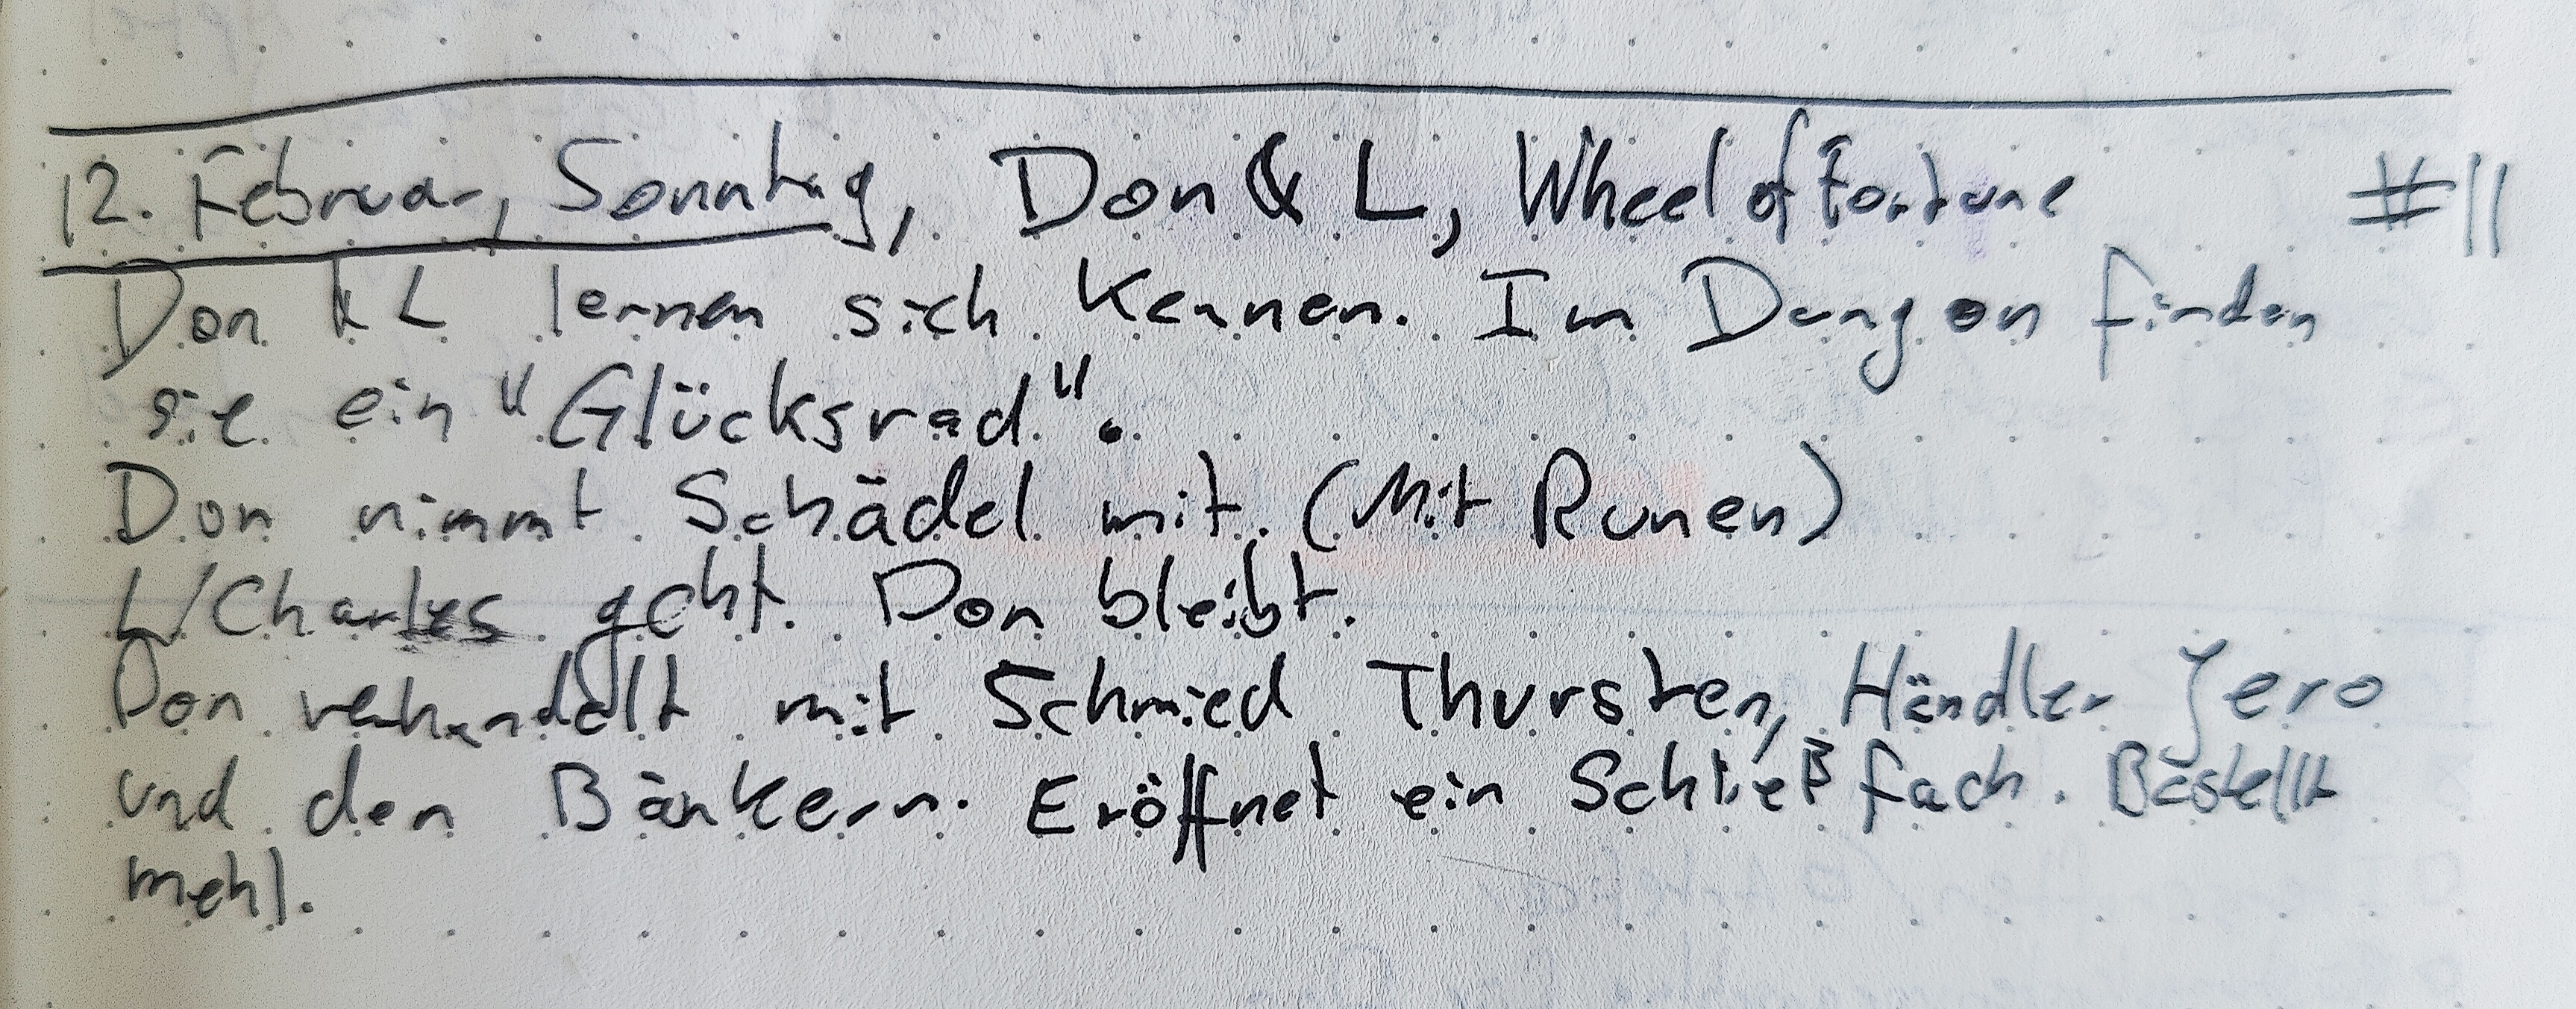 12. Februar, Sonntag, Don & L, Wheel of Fortune #11
Don & L lernen sich kennen. Im Dungeon finden
sie ein "Glücksrad".
Don nimmt Schädel mit. (Mit Runen)
L/Charles geht. Don bleibt.
Don verhandelt mit Schmied Thursten, Händler Jero
und den Bänkern. Eröffnet ein Schließfach. Bestellt
mehl.